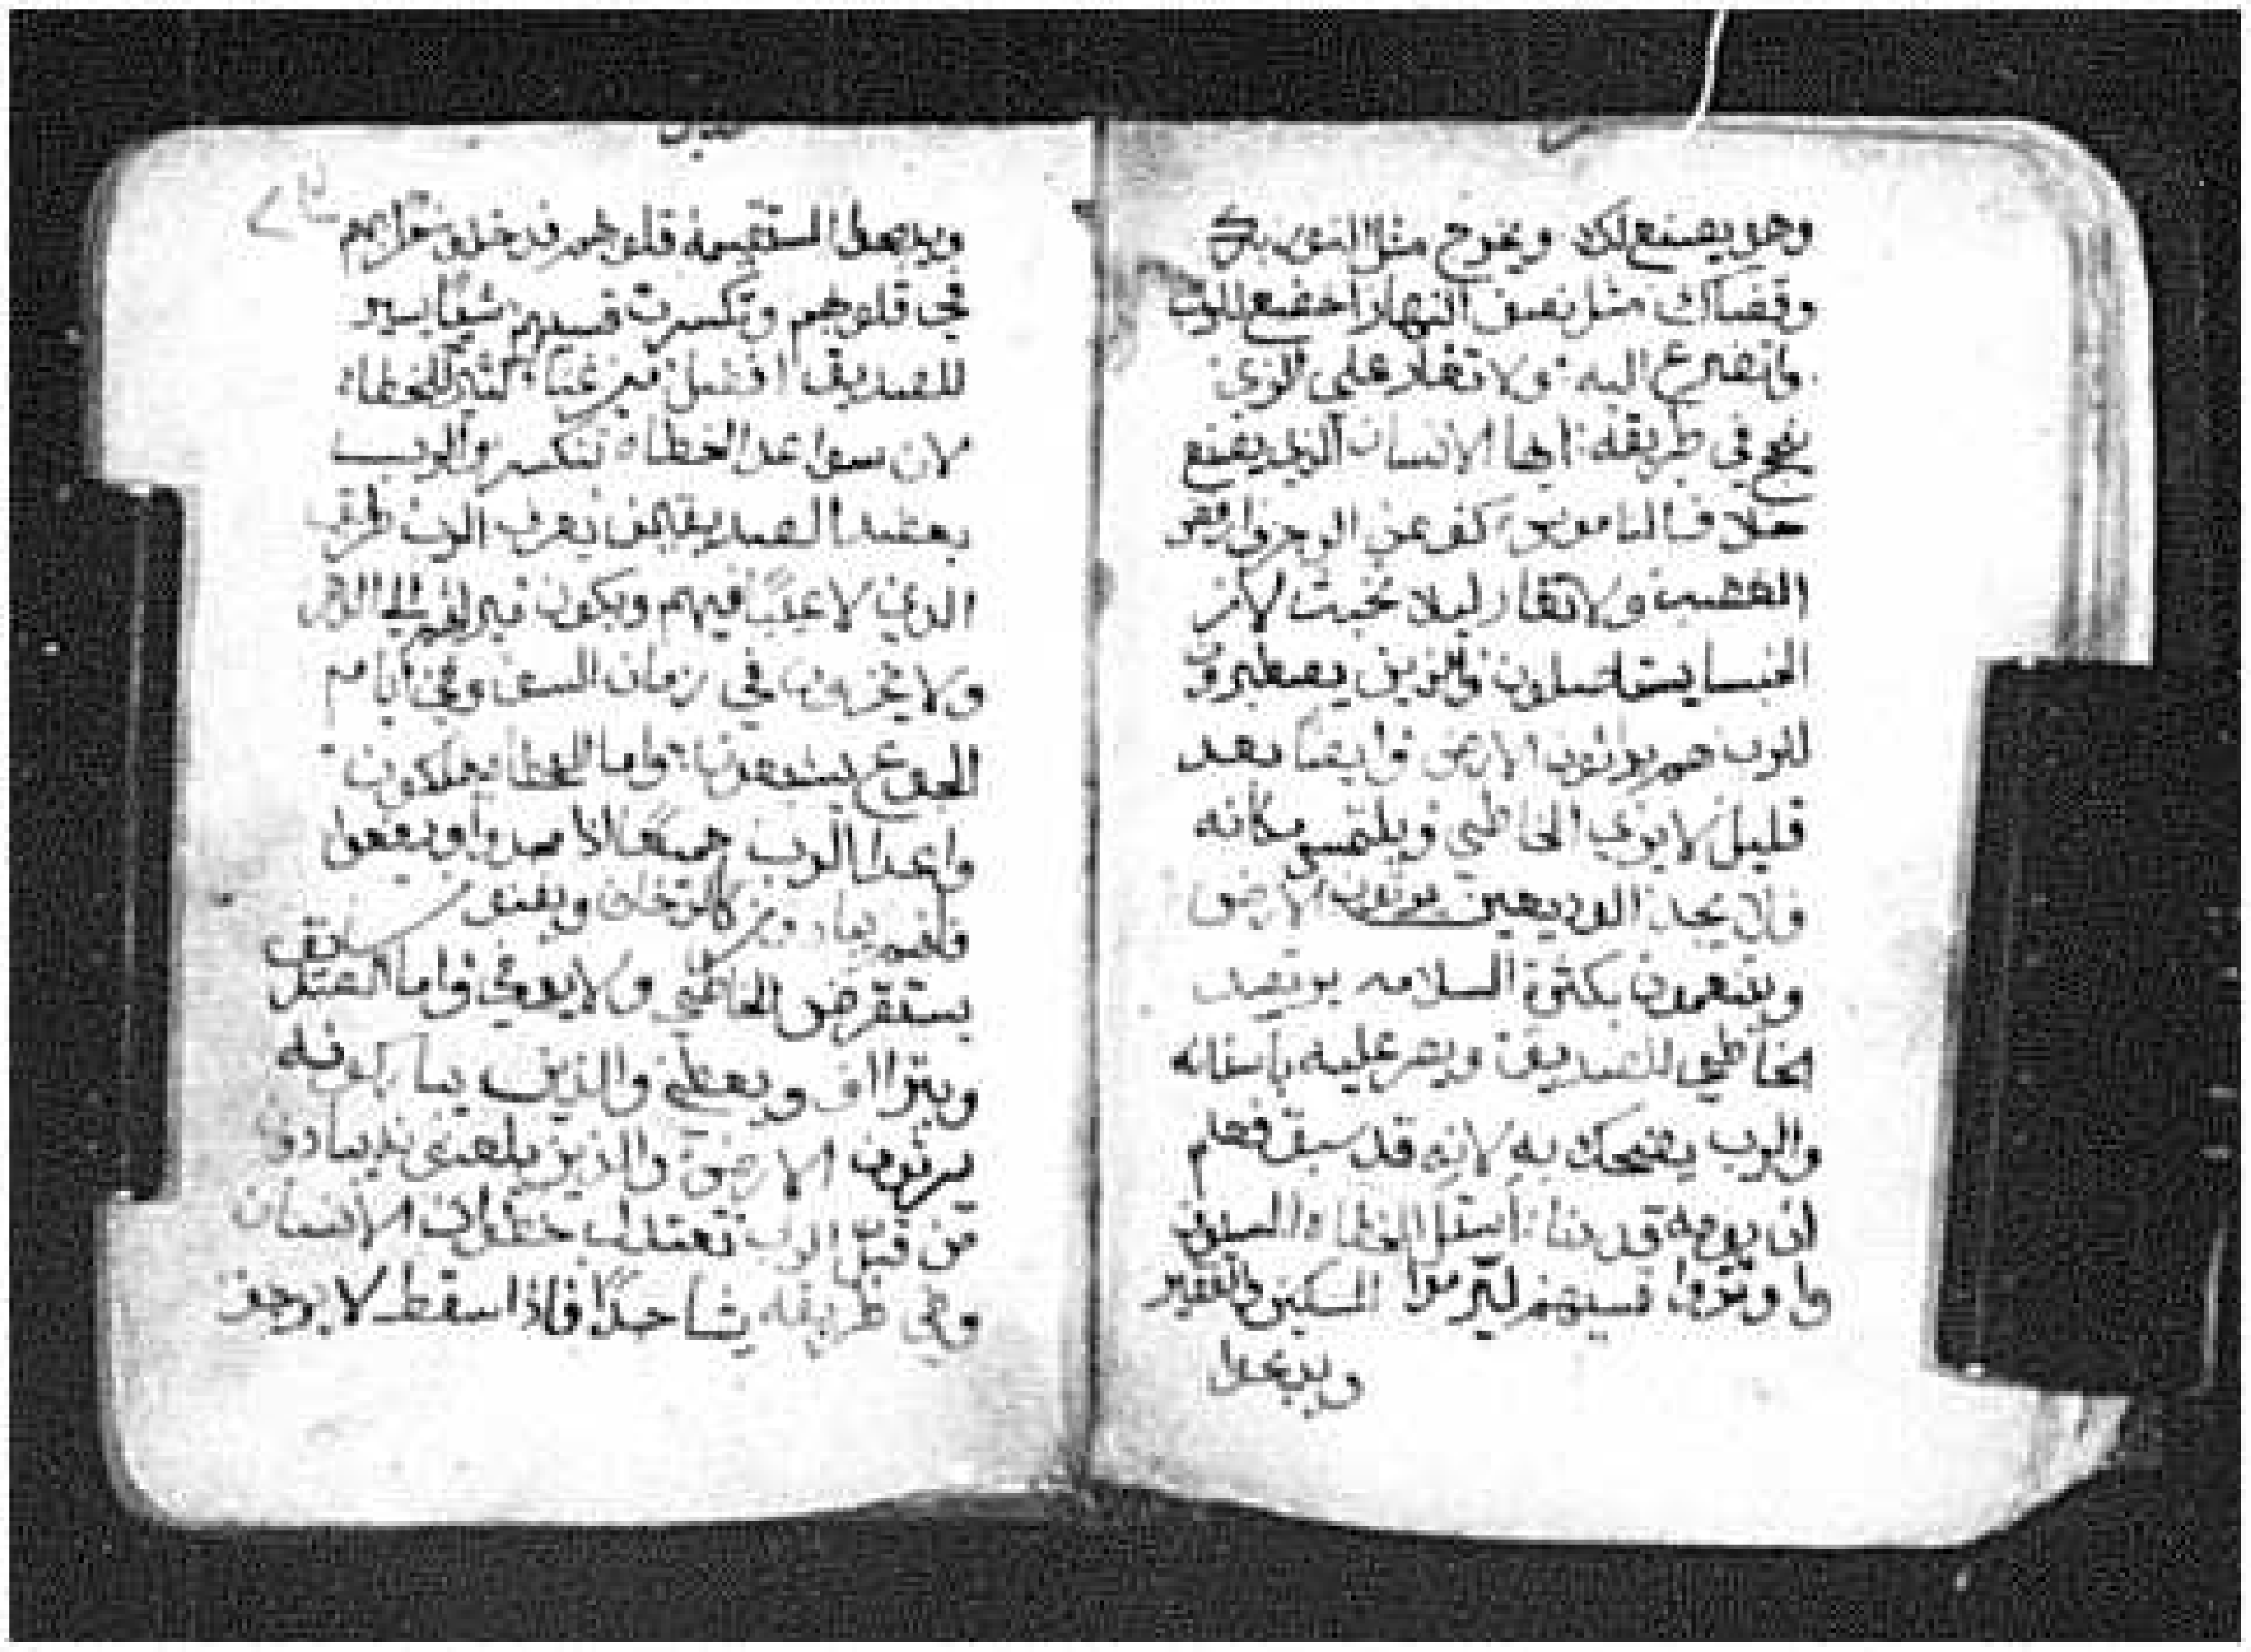 وهو يصنع لك ويخرج مثل النور برك
وقضاك مثل نصف النهار اخضع للرب
وانضرع اليه ولا تغار على الذي
ينجح في طريقه ايها الانسان الذي يصنع
خلاف الناموس كف عن الرجز وارفض
الغضب ولا تغار ليلا تخبث لان
الخبثا يستاصلون والذين يصطبرون
للرب هم يرثون الارض وايضا بعد
قليل لا يوجد الخاطي ويلتمس مكانه
فلا يجد الوديعين يرثون الارض
ويتنعمون بكثرة السلامه يرتصد
الخاطي للصديق ويصر عليه باسنانه
والرب يضحك به لانه قد سبق فعلم
ان يومه قد دنا استل الخطاه السيوف
واوتروا قسيهم ليرموا المسكين والفقير
ويذبحوا
ويذبحوا المستقيمة قلوبهم فدخلت حرابهم
في قلوبهم وتكسرت قسيهم شيا يسير
للصديق افضل من غنا كثير للخطاه
لان سواعد الخطاه تنكسر والرب
يعضد الصديقين يعرف الرب طرق
الذي لا عيب فيهم ويكون ميراثهم الي الدهر
ولا يخزون في زمان السو وفي ايام
الجوع يشبعون واما الخطاه يهلكون
واعدا الرب جميعا اذا مجدوا ويرفعوا
فانهم يبادون كالدخان ويفنى
يستقرض الخاطي ولا يوفي واما الصديق
ويتراف ويعطي والذين يباركونه
يرثون الارض والذين يلعنونه يبادون
من قبل الرب تعتدل خطوات الانسان
وفي طريقه يشا جدا فاذا سقط لا يرجف